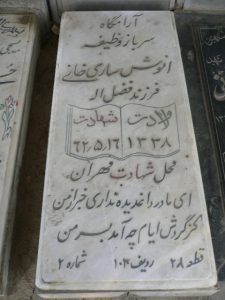 آرامگاه
سرباز وظیفه
انوش ساری خانی
فرزند فضل اله
ولادت شهادت
۱۳۳۸ ۶۲,۵,۱۶
محل شهادت مهران
ای مادر داغدیده نداری خبر از من
کز گردش ایام چه آمد بسر من
قطعه ۲۸ ردیف ۱۰۴ شماره ۲